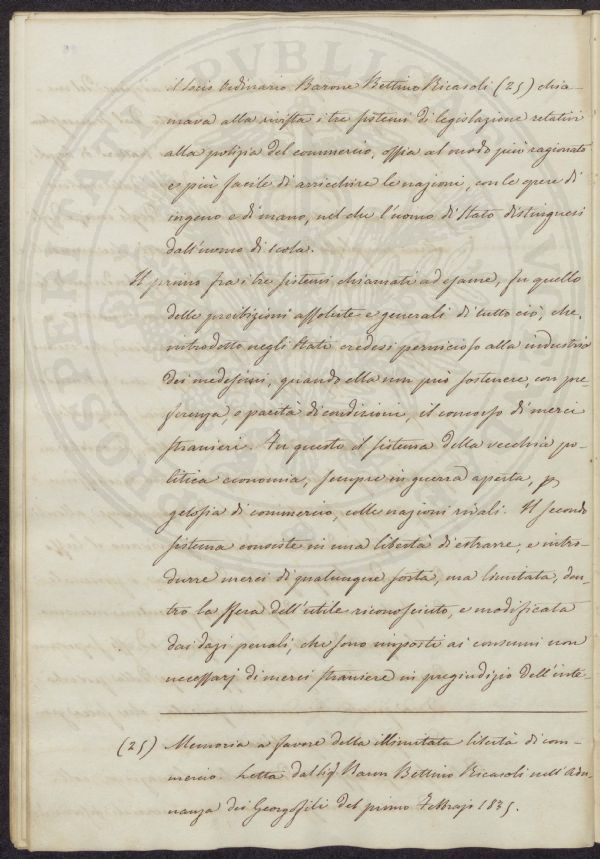 il Socio Ordinario Barone Bettino Ricasoli (25) chia-
mava alla rivista i tre sistemi di legislazione relativi
alla polizia del commercio, ossia al modo più ragionato
e più facile di arricchire le nazioni, con le opere di
ingegno e di mano, nel che l'uomo di Stato distinguesi
dall'uomo di scola.
Il primo fra i tre sistemi chiamati ad esame, fu quello
delle proibizioni assolute e generali di tutto ciò, che,
introdotto negli Stati credesi pernicioso alla industria
dei medesimi, quando ella non può sostenere, con pre-
ferenza, o parità di condizioni, il concorso di merci
straniere. Fu questo il sistema della vecchia po-
litica economia, sempre in guerra aperta, p
gelosia di commercio, colle nazioni rivali. Il secondo
sistema consiste in una libertà di estrarre, e intro-
durre merci di qualunque sorta, ma limitata, den-
tro la sfera dell'utile riconosciuto, e modificata
dai dazi penali, che sono imposti ai consumi non
necessarj di merci straniere in pregiudizio dell'inte-
(25) Memoria a favore della illimitata libertà di com-
mercio. Letta dal Sig. Baron Bettino Ricasoli nell'Adu-
nanza dei Georgofili del primo Febbrajo 1835.
PROSPERITATI PUBLICAE